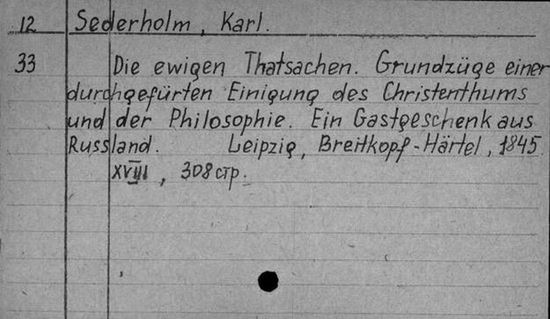 12 Sederholm, Karl.
33 Die ewigen Thatsachen. Grundzüge einer
durchgefürten Einigung des Christenthums
und der Philosophie. Ein Gastgeschenk aus
Russland. Leipzig, Breitkopf-Härtel, 1845.
XVIII, 308 стр.